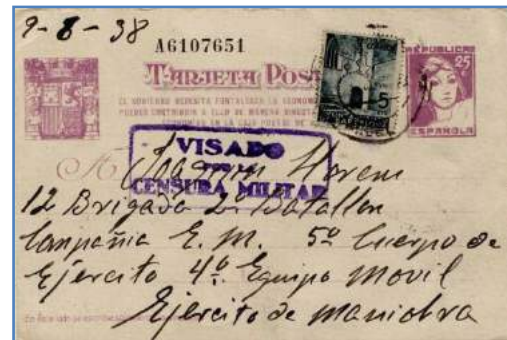 9-8-38
A6107651
TARJETA POST
REPUBLICA
25
5
ESPAÑOLA
EL GOBIERNO NECESITA FORTALECER LA ECONOM
PUEDES CONTRIBUIR A ELLO DE MANERA DIRECT
EN LA CAJA POSTAL DE
A
VISADO
POR LA
CENSURA MILITAR
Joaquin
12 Brigada 2º Batallon
Compañia E. M. 5º Cuerpo de
Ejercito 4º Equipo Movil
Ejercito de Maniobra